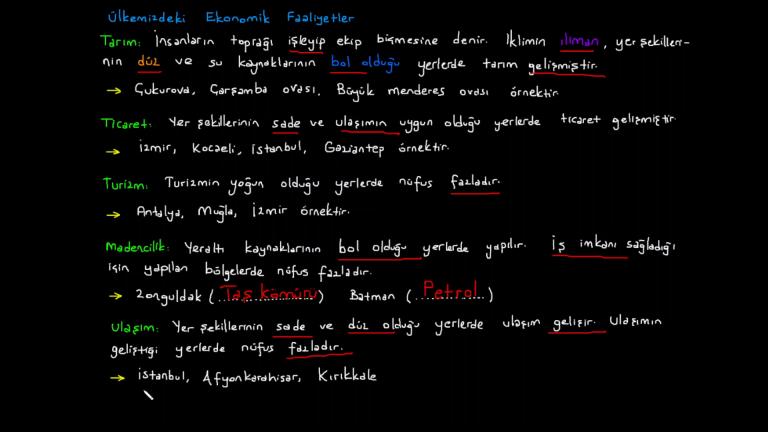 Ülkemizdeki Ekonomik Faaliyetler
Tarım: İnsanların toprağı işleyip ekip biçmesine denir. İklimin ılıman, yer şekilleri-
nin düz ve su kaynaklarının bol olduğu yerlerde tarım gelişmiştir.
→ Çukurova, Çarşamba ovası, Büyük menderes ovası örnektir.
Ticaret: Yer şekillerinin sade ve ulaşımın uygun olduğu yerlerde ticaret gelişmiştir.
→ izmir, Kocaeli, istanbul, Gaziantep örnektir.
Turizm: Turizmin yoğun olduğu yerlerde nüfus fazladır.
→ Antalya, Muğla, İzmir örnektir.
Madencilik: Yeraltı kaynaklarının bol olduğu yerlerde yapılır. İş imkanı sağladığı
için yapılan bölgelerde nüfus fazladır.
→ Zonguldak (Taş kömürü) Batman (Petrol)
Ulaşım: Yer şekillerinin sade ve düz olduğu yerlerde ulaşım gelişir. Ulaşımın
geliştiği yerlerde nüfus fazladır.
→ istanbul, Afyonkarahisar, Kırıkkale